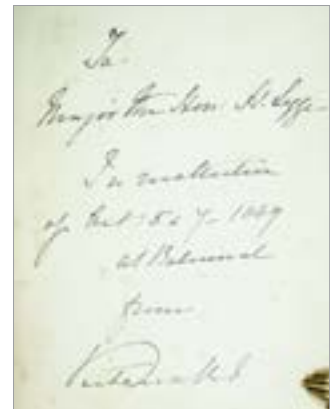 To
Major the Hon. H. Legge
In recollection
of Oct: 5 & 7 - 1849
at Balmoral
from
Victoria R I